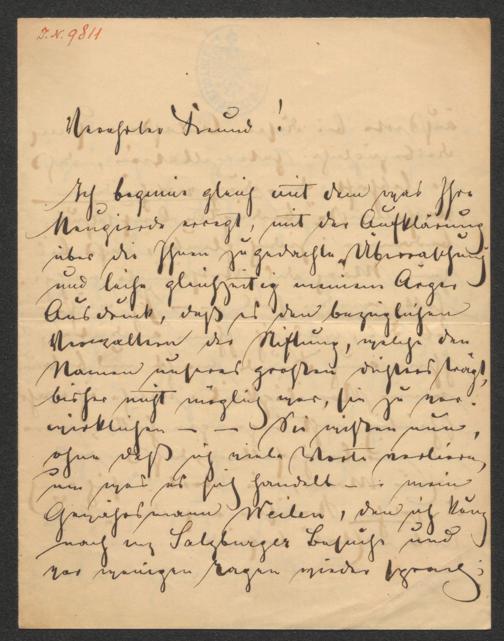 I.N. 9811
Verehrter Freund!
Ich beginne gleich mit dem was Ihre
Neugierde erregt, mit der Aufklärung
über die Ihnen zugedachte „Überraschung
und leihe gleichzeitig meinem Ärger
Ausdruck, daß es den bezüglichen
Verwaltern der Stiftung, welche den
Namen unseres großen Dichters trägt,
bisher nicht möglich war, sie zu ver-
wirklichen – – Sie wissen nun,
ohne daß ich viele Worte verliere,
um was es sich handelt – mein
Gewährsmann Weilen, den ich kurz
nach my Salzburger Besuche und
vor wenigen Tagen wieder sprach,